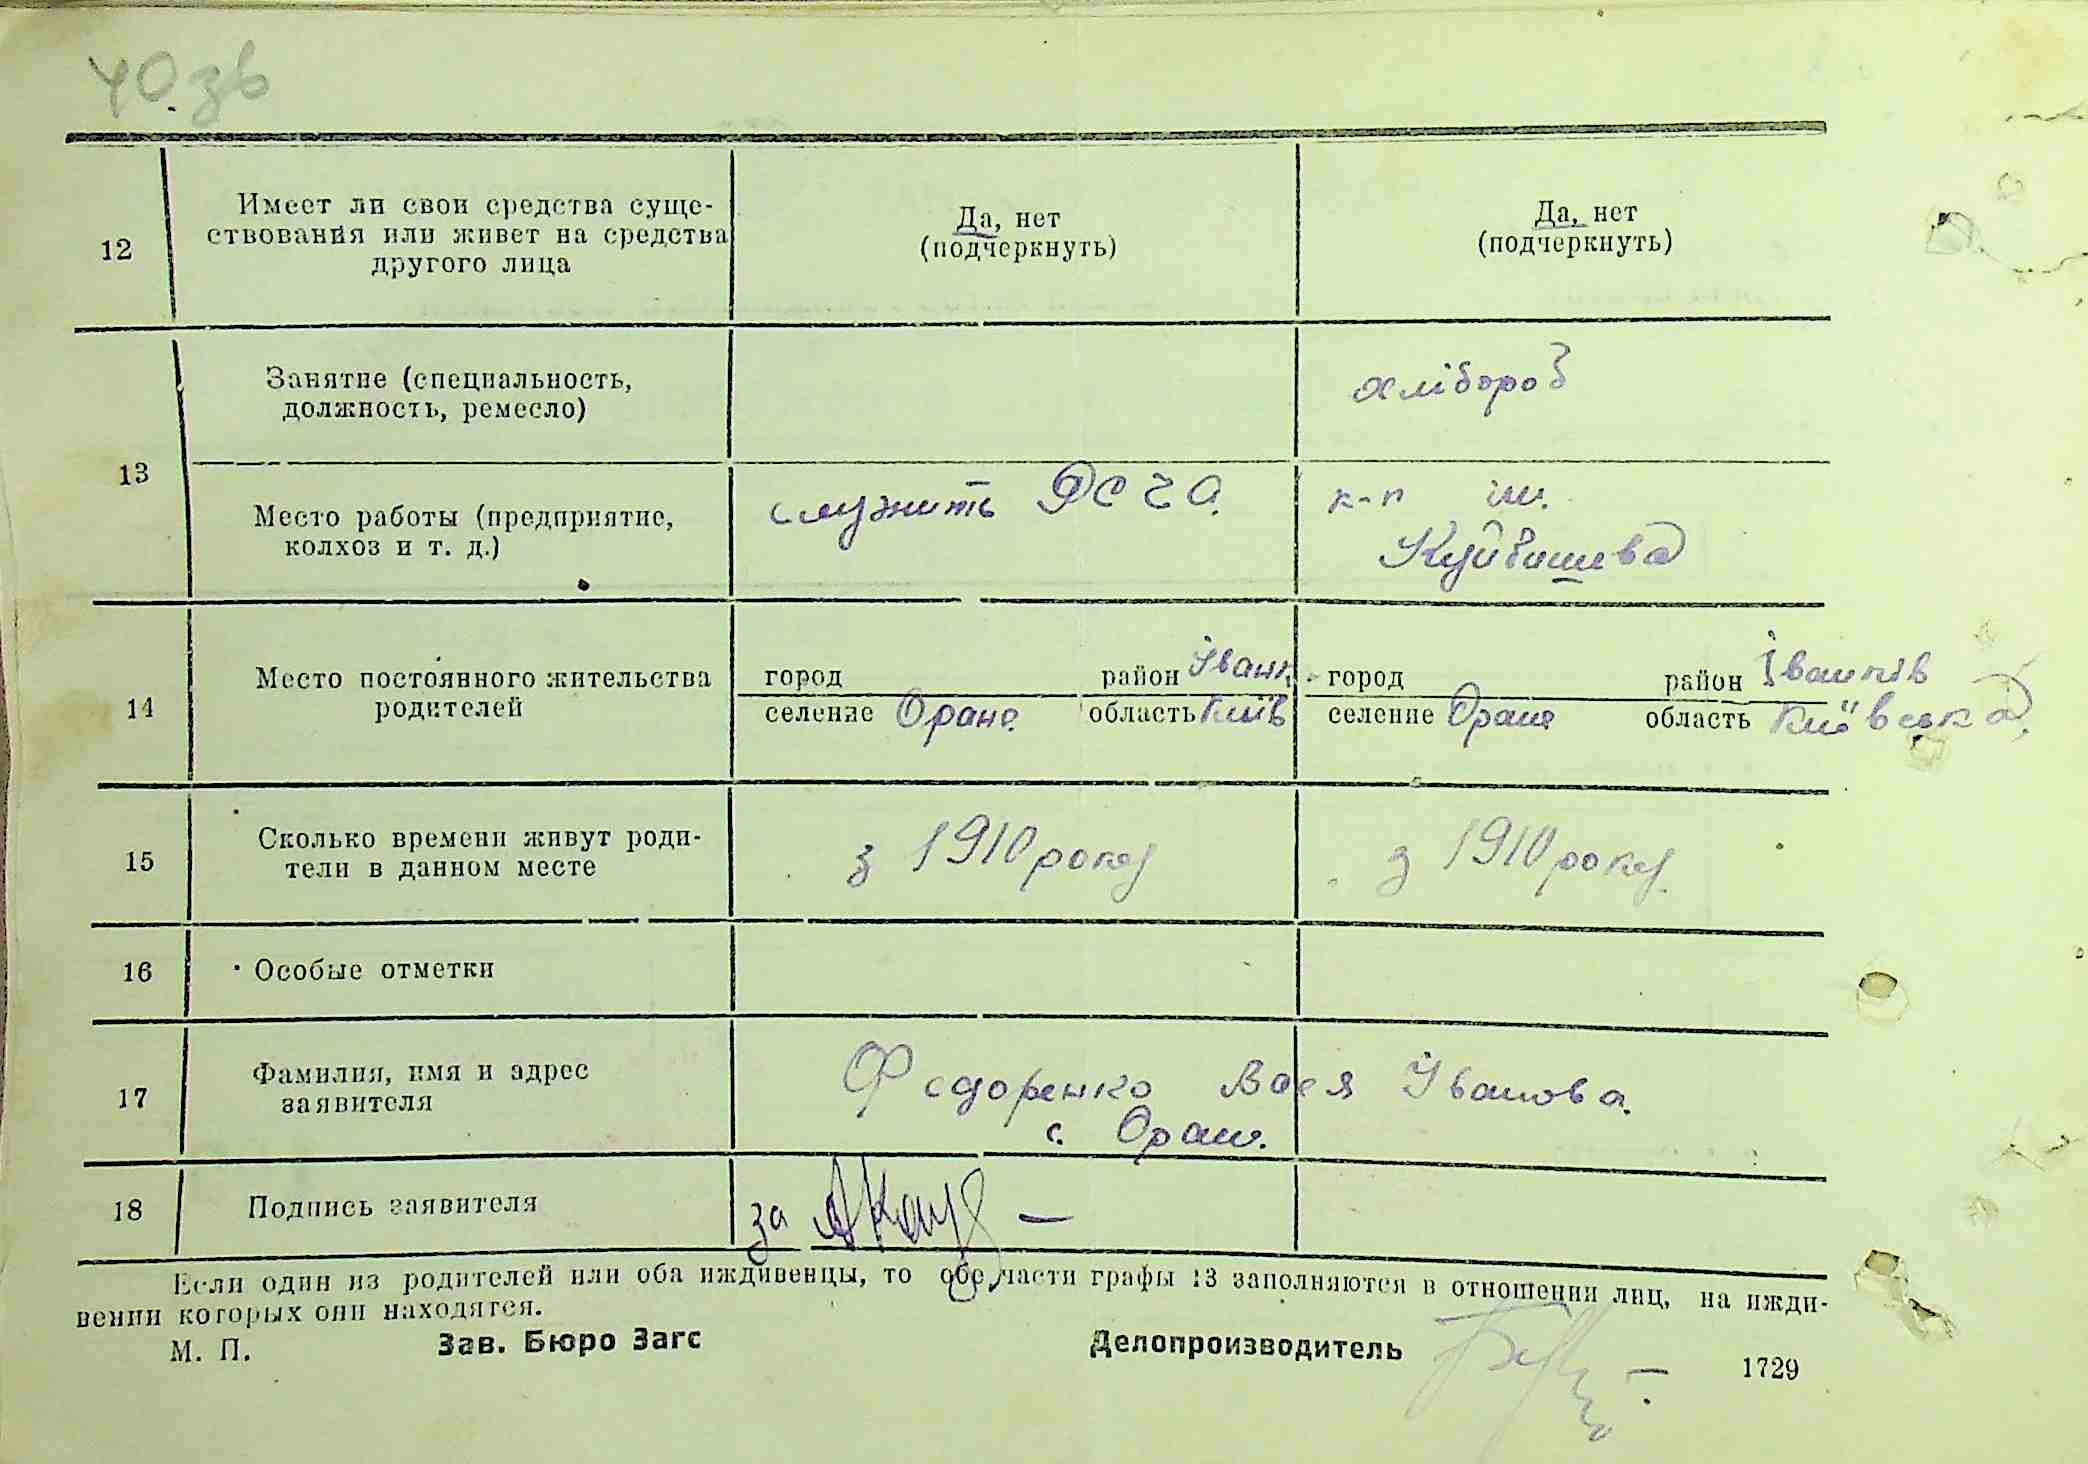 40.зв
12
Имеет ли свои средства суще-
ствования или живет на средства
другого лица
Да, нет
(подчеркнуть)
Да, нет
(подчеркнуть)
13
Занятие (специальность,
должность, ремесло)
хлібороб
Место работы (предприятие,
колхоз и т. д.)
служить РСЧА.
к-п ім.
Куйбишева
14
Место постоянного жительства
родителей
город район Іванк.
селение Оране область Київ
город район Іванків
селение Оране область Київська
15
Сколько времени живут роди-
тели в данном месте
з 1910 року
з 1910 року
16
Особые отметки
17
Фамилия, имя и адрес
заявителя
Федоренко Вася Іванова.
с. Оран.
18
Подпись заявителя
за
Если один из родителей или оба иждивенцы, то обе части графы 13 заполняются в отношении лиц, на ижди-
вении которых они находятся.
М. П. Зав. Бюро Загс Делопроизводитель 1729